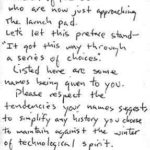 who are now just approaching
the launch pad.
Let's let this preface stand—
"It got this way through
a series of choices."
Listed here are some
names being given to you.
Please respect the
tendencies your names suggests
to simplify any history you choose
to maintain against the winter
of technological spirit.